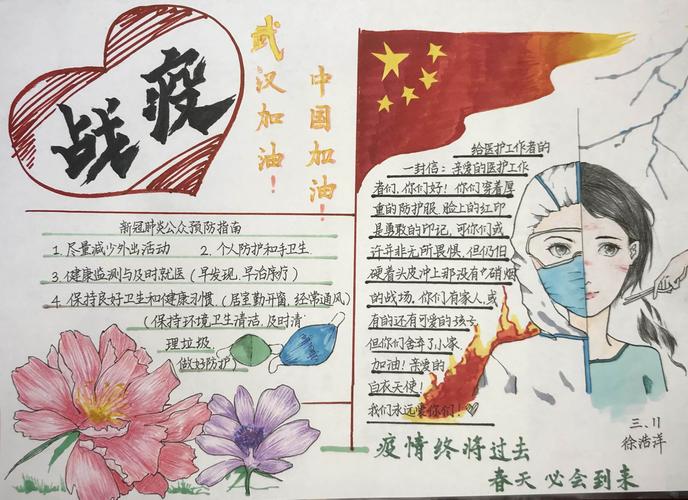 战疫
武汉加油！
中国加油！
新冠肺炎公众预防指南
1. 尽量减少外出活动 2. 个人防护和手卫生.
3. 健康监测与及时就医（早发现，早治疗）
4. 保持良好卫生和健康习惯（居室勤开窗，经常通风）
（保持环境卫生清洁，及时清
理垃圾.
做好防护）
给医护工作者的
一封信：亲爱的医护工作
者们，你们好！你们穿着厚
重的防护服，脸上的红印
是勇敢的印记，可你们或
许并非无所畏惧，但仍旧
硬着头皮冲上那没有硝烟
的战场，你们有家人，或
有的还有可爱的孩子
但你们舍弃了小家
加油！亲爱的
白衣天使！
我们永远爱你们！
疫情终将过去
春天必会到来
三、11
徐浩洋